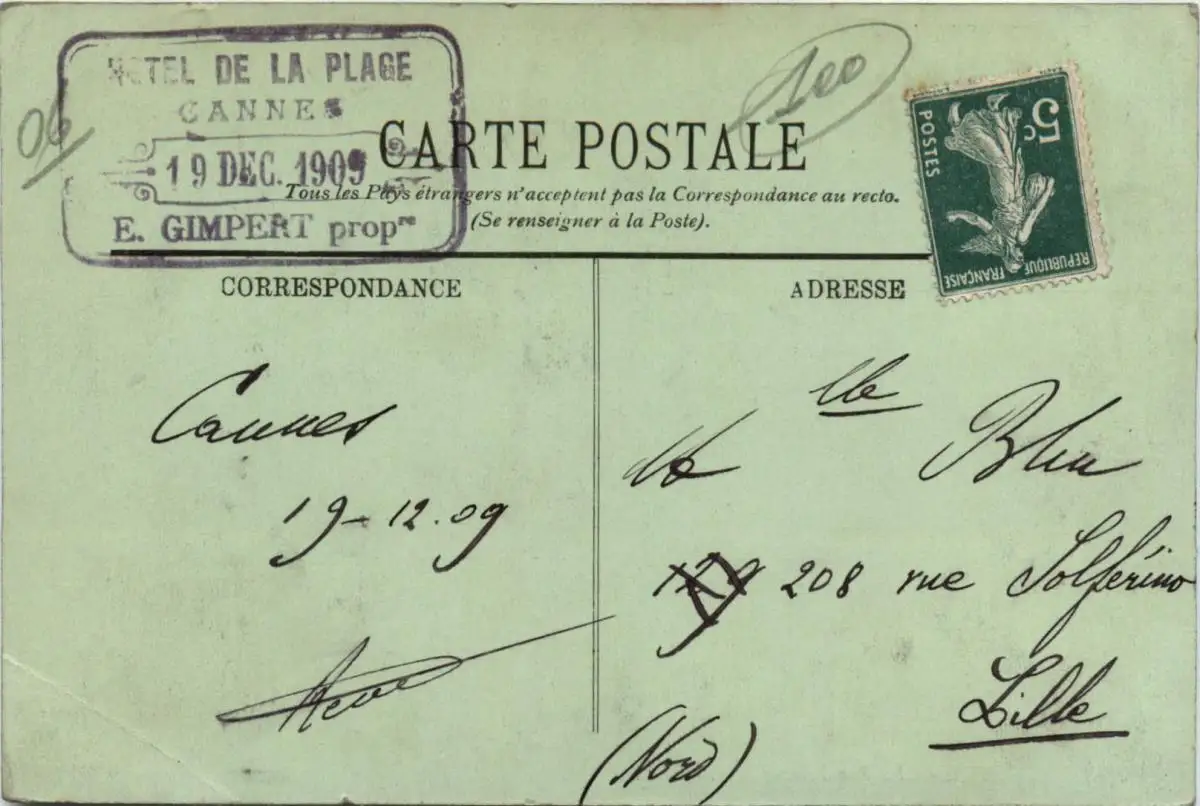 HOTEL DE LA PLAGE
CANNES
19 DEC. 1909
E. GIMPERT propre
06
100
CARTE POSTALE
Tous les Pays étrangers n'acceptent pas la Correspondance au recto.
(Se renseigner à la Poste).
5c
POSTES
REPUBLIQUE FRANÇAISE
CORRESPONDANCE
Cannes
19-12.09
ADRESSE
Mlle
208 rue Solférino
Lille
(Nord)